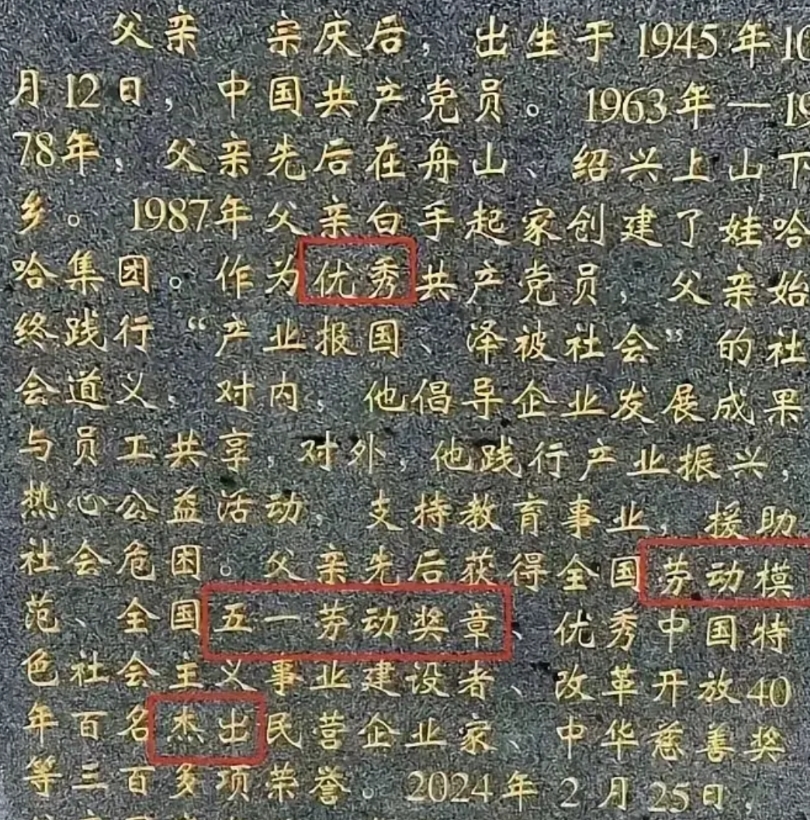 父亲 宗庆后，出生于1945年10
月12日，中国共产党员。1963年—19
78年，父亲先后在舟山、绍兴上山下
乡。1987年父亲白手起家创建了娃哈
哈集团。作为优秀共产党员，父亲始
终践行“产业报国、泽被社会”的社
会道义，对内，他倡导企业发展成果
与员工共享，对外，他践行产业振兴，
热心公益活动，支持教育事业，援助
社会危困。父亲先后获得全国劳动模
范、全国五一劳动奖章、优秀中国特
色社会主义事业建设者、改革开放40
年百名杰出民营企业家、中华慈善奖
等三百多项荣誉。2024年2月25日，